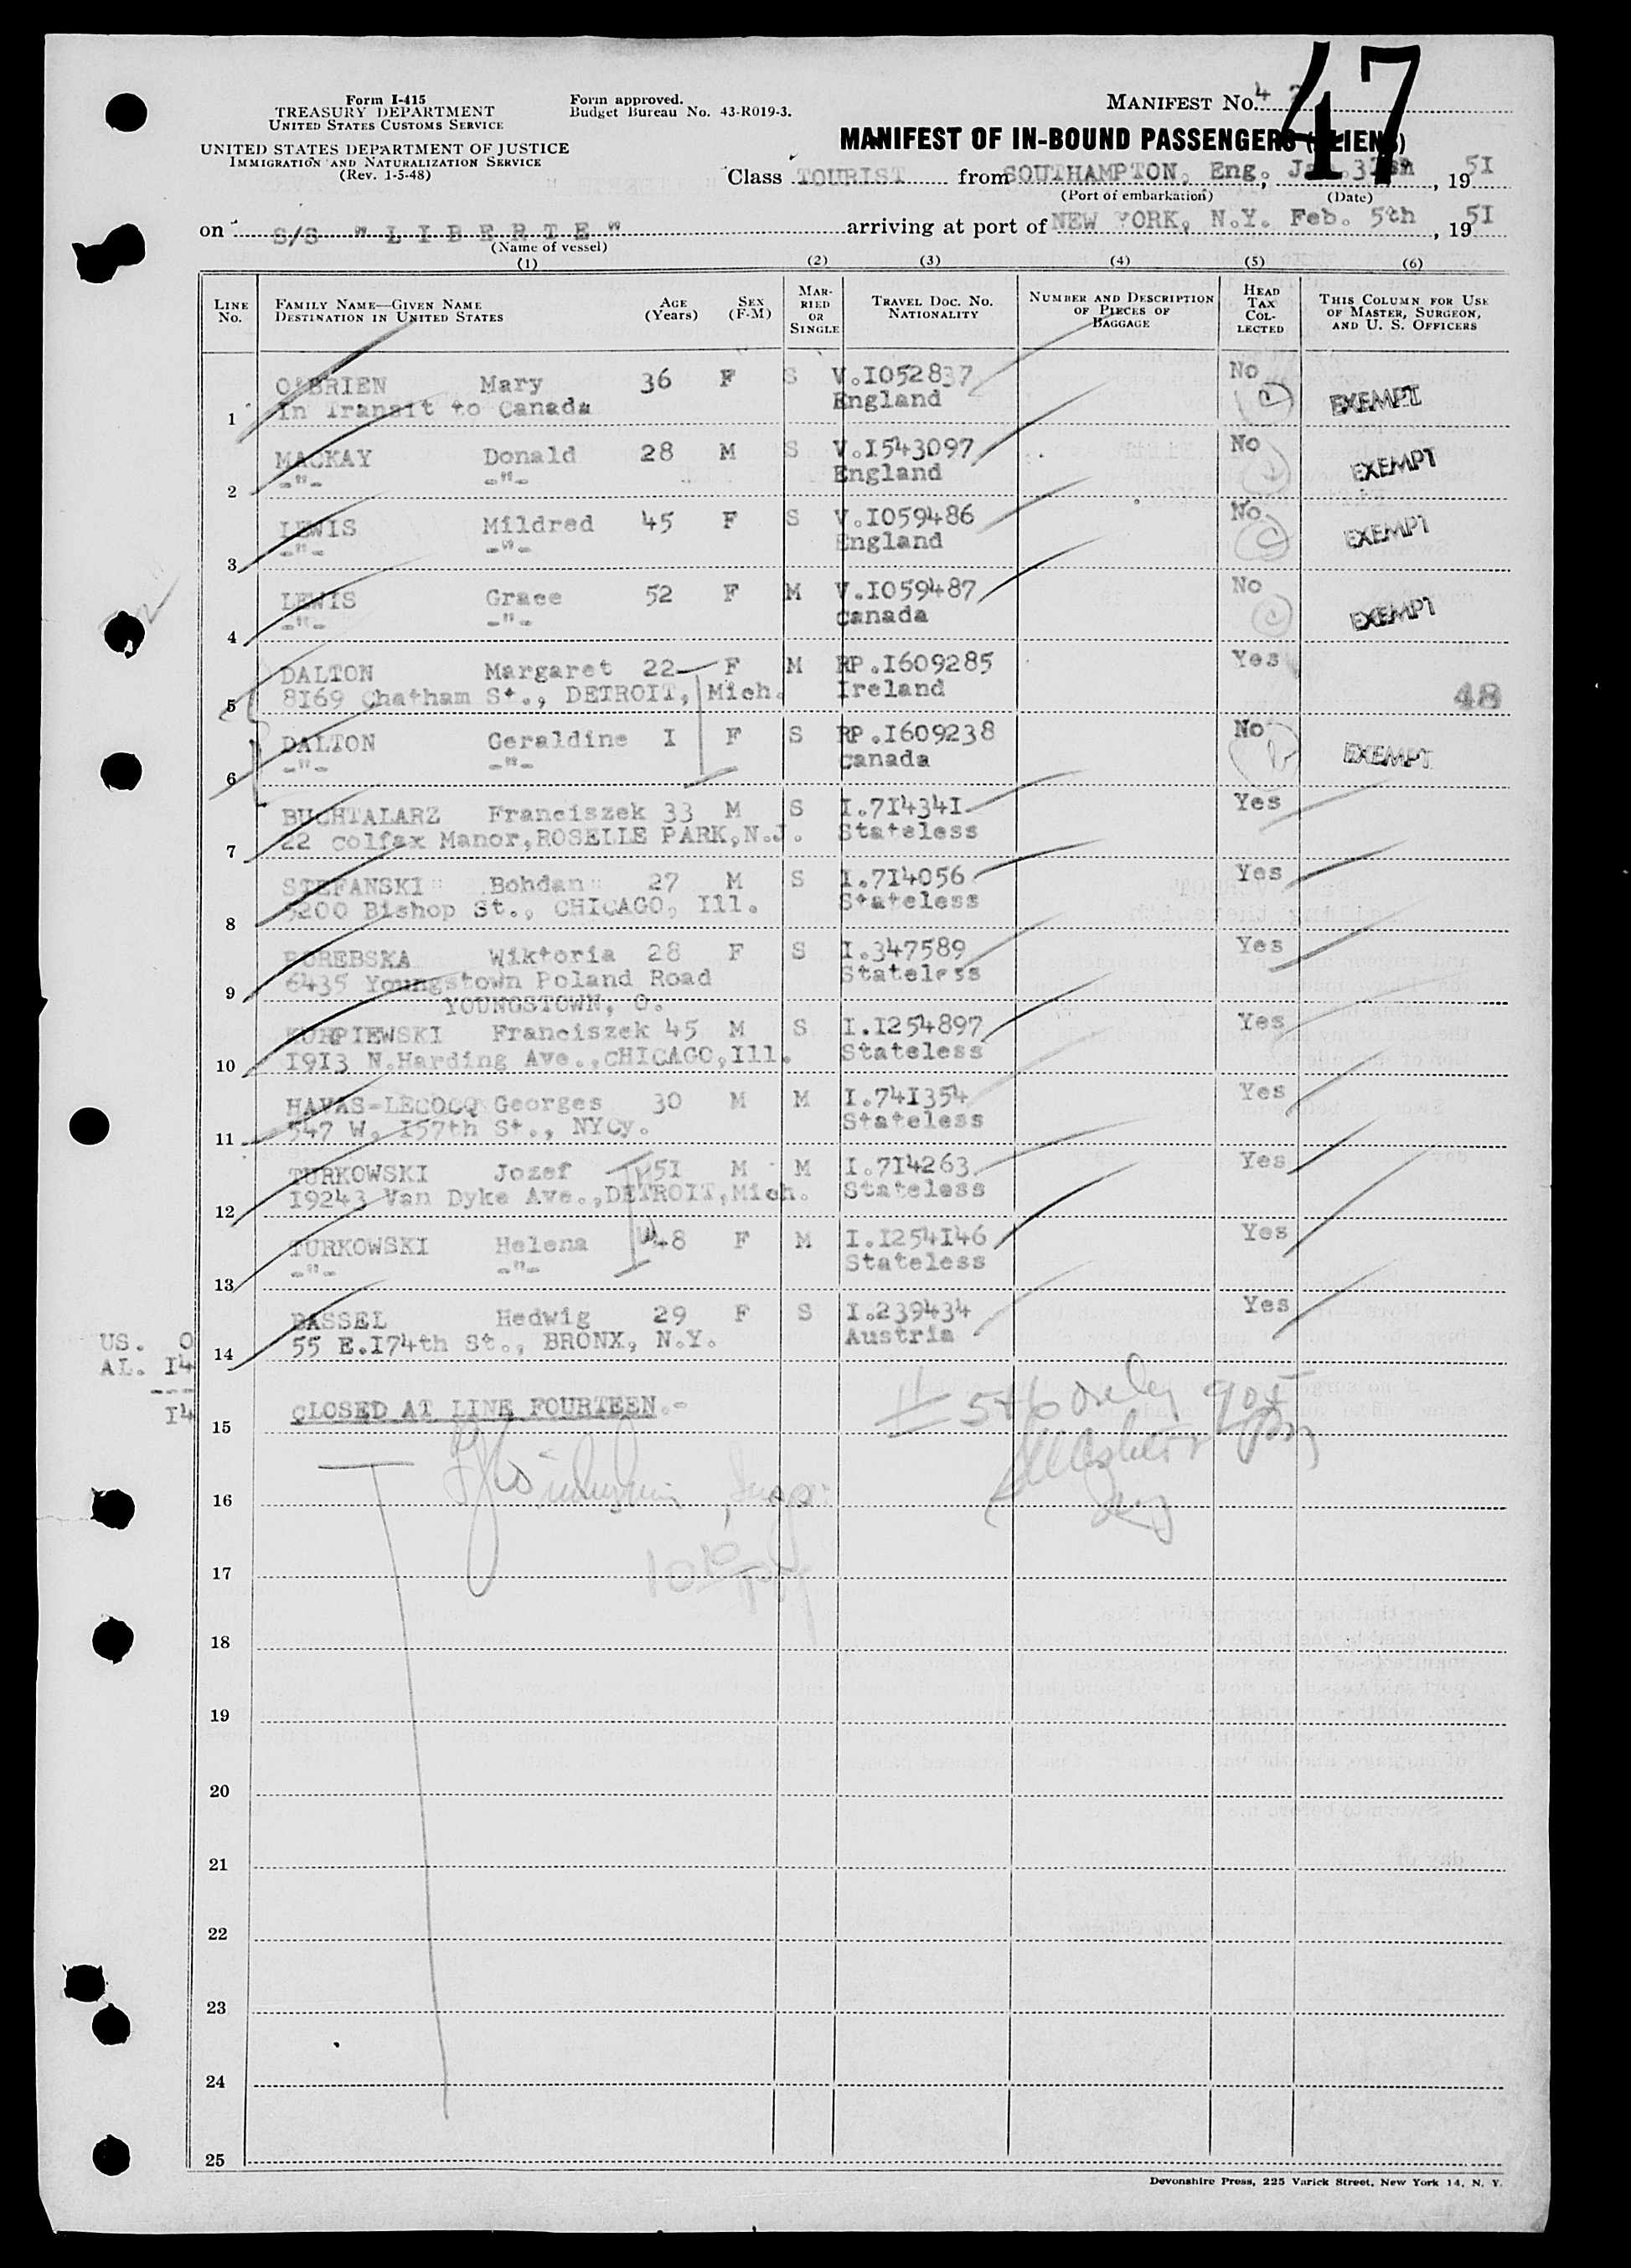 47
Form I-415
TREASURY DEPARTMENT
UNITED STATES CUSTOMS SERVICE
UNITED STATES DEPARTMENT OF JUSTICE
IMMIGRATION AND NATURALIZATION SERVICE
(Rev. 1-5-48)
Form approved.
Budget Bureau No. 43-R019-3.
MANIFEST NO. 4
MANIFEST OF IN-BOUND PASSENGERS (ALIENS)
Class TOURIST from SOUTHAMPTON, Eng., , 19 5I
(Port of embarkation) (Date)
on S/S "L I B E R T E" arriving at port of NEW YORK, N.Y. Feb. 5th , 19 5I
(Name of vessel)
(1) (2) (3) (4) (5) (6)
LINE NO. FAMILY NAME—GIVEN NAME DESTINATION IN UNITED STATES AGE (YEARS) SEX (F-M) MARRIED OR SINGLE TRAVEL DOC. NO. NATIONALITY NUMBER AND DESCRIPTION OF PIECES OF BAGGAGE HEAD TAX COLLECTED THIS COLUMN FOR USE OF MASTER, SURGEON, AND U. S. OFFICERS
O'BRIEN Mary 36 F S V.I052837 No
1 In Transit to Canada England EXEMPT
MACKAY Donald 28 M S V.I543097 No
2 -"- -"- England EXEMPT
LEWIS Mildred 45 F S V.I059486 No
3 -"- -"- England EXEMPT
LEWIS Grace 52 F M V.I059487 No
4 -"- -"- Canada EXEMPT
DALTON Margaret 22 F M RP.I609285 Yes
5 8I69 Chatham St., DETROIT, Mich. Ireland 48
DALTON Geraldine I F S RP.I609238 No
6 -"- -"- Canada EXEMPT
BUCHTALARZ Franciszek 33 M S I.7I434I Yes
7 22 Colfax Manor, ROSELLE PARK, N.J. Stateless
STEFANSKI Bohdan 27 M S I.7I4056 Yes
8 5200 Bishop St., CHICAGO, Ill. Stateless
POREBSKA Wiktoria 28 F S I.347589 Yes
9 6435 Youngstown Poland Road Stateless
YOUNGSTOWN, O.
KURPIEWSKI Franciszek 45 M S I.I254897 Yes
10 I9I3 N.Harding Ave.,CHICAGO,Ill. Stateless
HAVAS-LECOCQ Georges 30 M M I.74I354 Yes
11 547 W. I57th St., NYCy. Stateless
TURKOWSKI Jozef 5I M M I.7I4263 Yes
12 I9243 Van Dyke Ave.,DETROIT,Mich. Stateless
TURKOWSKI Helena 48 F M I.I254I46 Yes
13 -"- -"- Stateless
BASSEL Hedwig 29 F S I.239434 Yes
14 55 E.I74th St., BRONX, N.Y. Austria
US. 0
AL. I4
---
I4
15 CLOSED AT LINE FOURTEEN.-
16
17
18
19
20
21
22
23
24
25
Devonshire Press, 225 Varick Street, New York 14, N. Y.